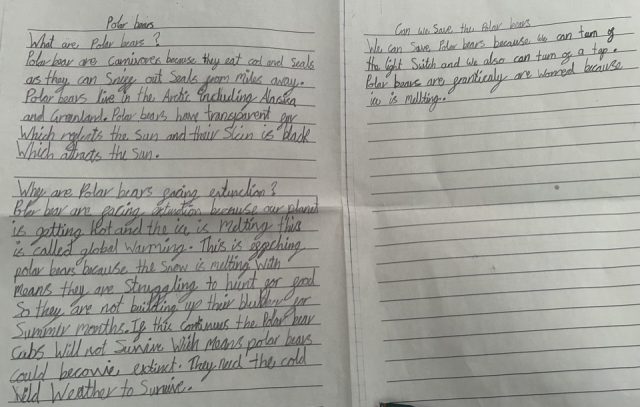 Polar bears
What are Polar bears?
Polar bear are Carnivores because they eat cod and Seals
as they can Snigg out Seals from miles away.
Polar bears live in the Arctic including Alaska
and Greenland. Polar bears have transparent fur
Which reflects the Sun and their Skin is black
Which attracts the Sun.
Why are Polar bears facing extinction?
Polar bear are facing extinction because our planet
is getting Hot and the ice is Melting this
is called global Warming. This is effecting
polar bears because the Snow is melting With
Means they are Struggling to hunt for food
So they are not building up their blubber for
Summer months. If this continues the Polar bear
Cubs Will not Survive With Means polar bears
Could become extinct. They need the cold
Wild Weather to Survive.
Can we Save the Polar bears
We can Save Polar bears because we can turn of
the light Switch and we also can turn of a tap.
Polar bears are are worried because
ice is mellting.